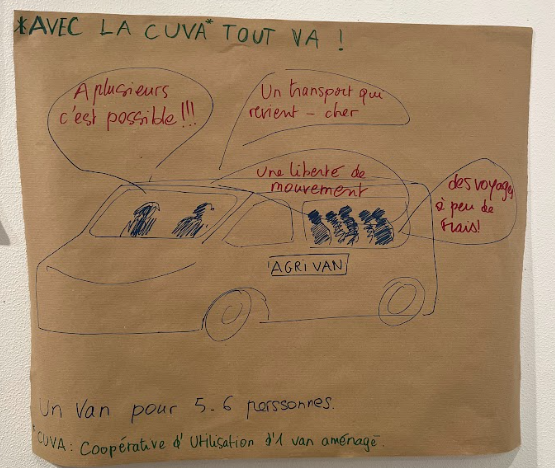 *AVEC LA CUVA* TOUT VA !
A plusieurs
c'est possible!!!
Un transport qui
revient - cher
une liberté de
mouvement
des voyages
à peu de
frais!
AGRIVAN
Un van pour 5.6 perssonnes.
*CUVA : Coopérative d'Utilisation d'1 van aménagé.